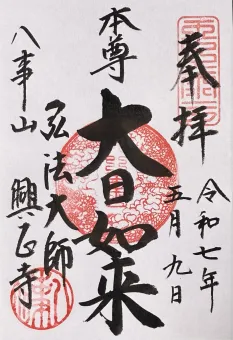 奉拝
令和七年
五月九日
本尊
大日如来
弘法大師
八事山
興正寺